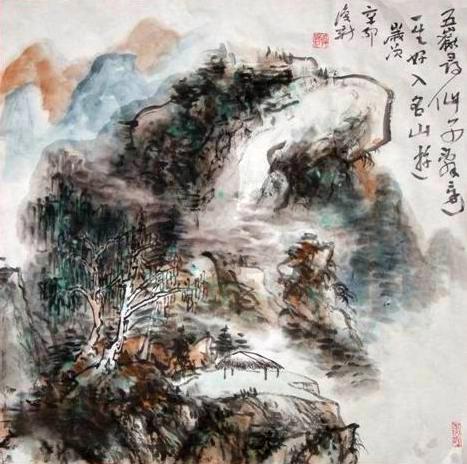 五嶽尋仙不辭遠
一生好入名山遊
歲次
辛卯